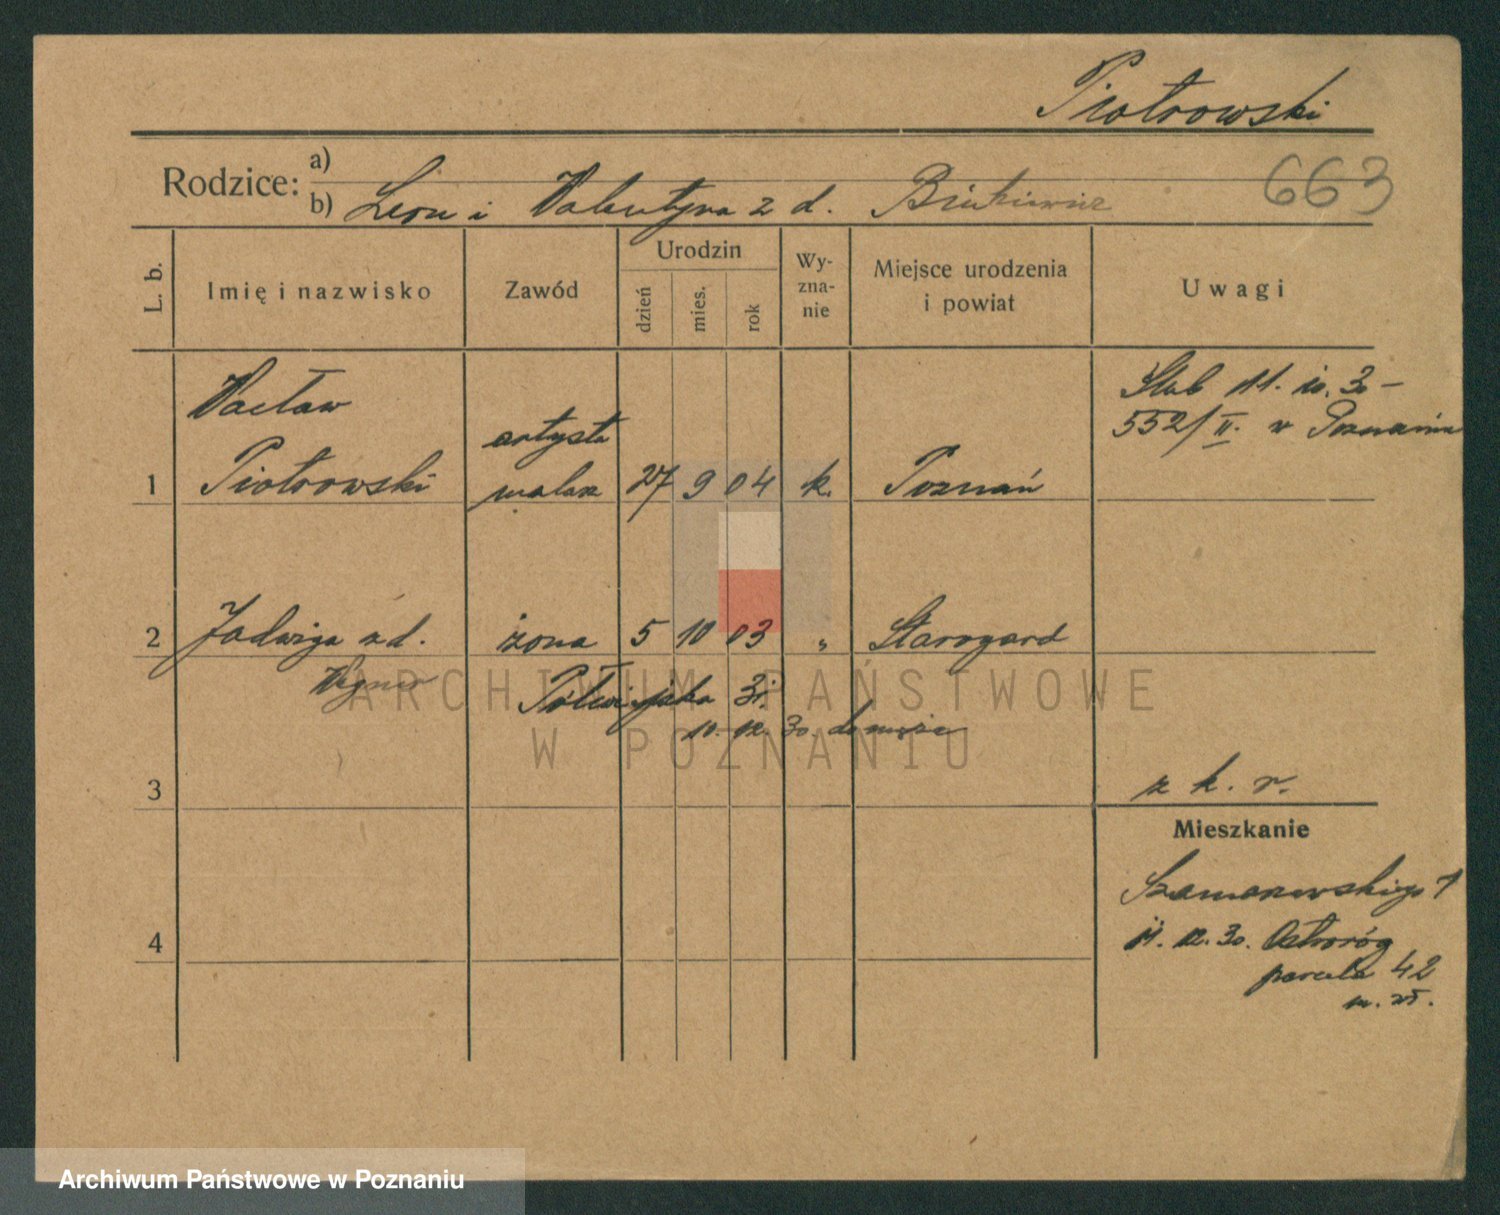 Piotrowski
663
Rodzice: a)
b) Leon i Valentyna z d.
L. b.
Imię i nazwisko
Zawód
Urodzin
dzień
mies.
rok
Wy-
zna-
nie
Miejsce urodzenia
i powiat
Uwagi
Wacław
Piotrowski
artysta
malarz
1
27 9 04 k. Poznań
Ślub 11. 10. 30 –
552/II. w Poznaniu
2 Jadwiga z d.
Wagner
żona 5 10 03 „ Starogard
Półwiejska
10. 12. 30 do męża
3
z k. r.
Mieszkanie
Szamarzewskiego 7
12. 30. Ostroróg
parcela 42
4
ARCHIWUM PAŃSTWOWE
W POZNANIU
Archiwum Państwowe w Poznaniu